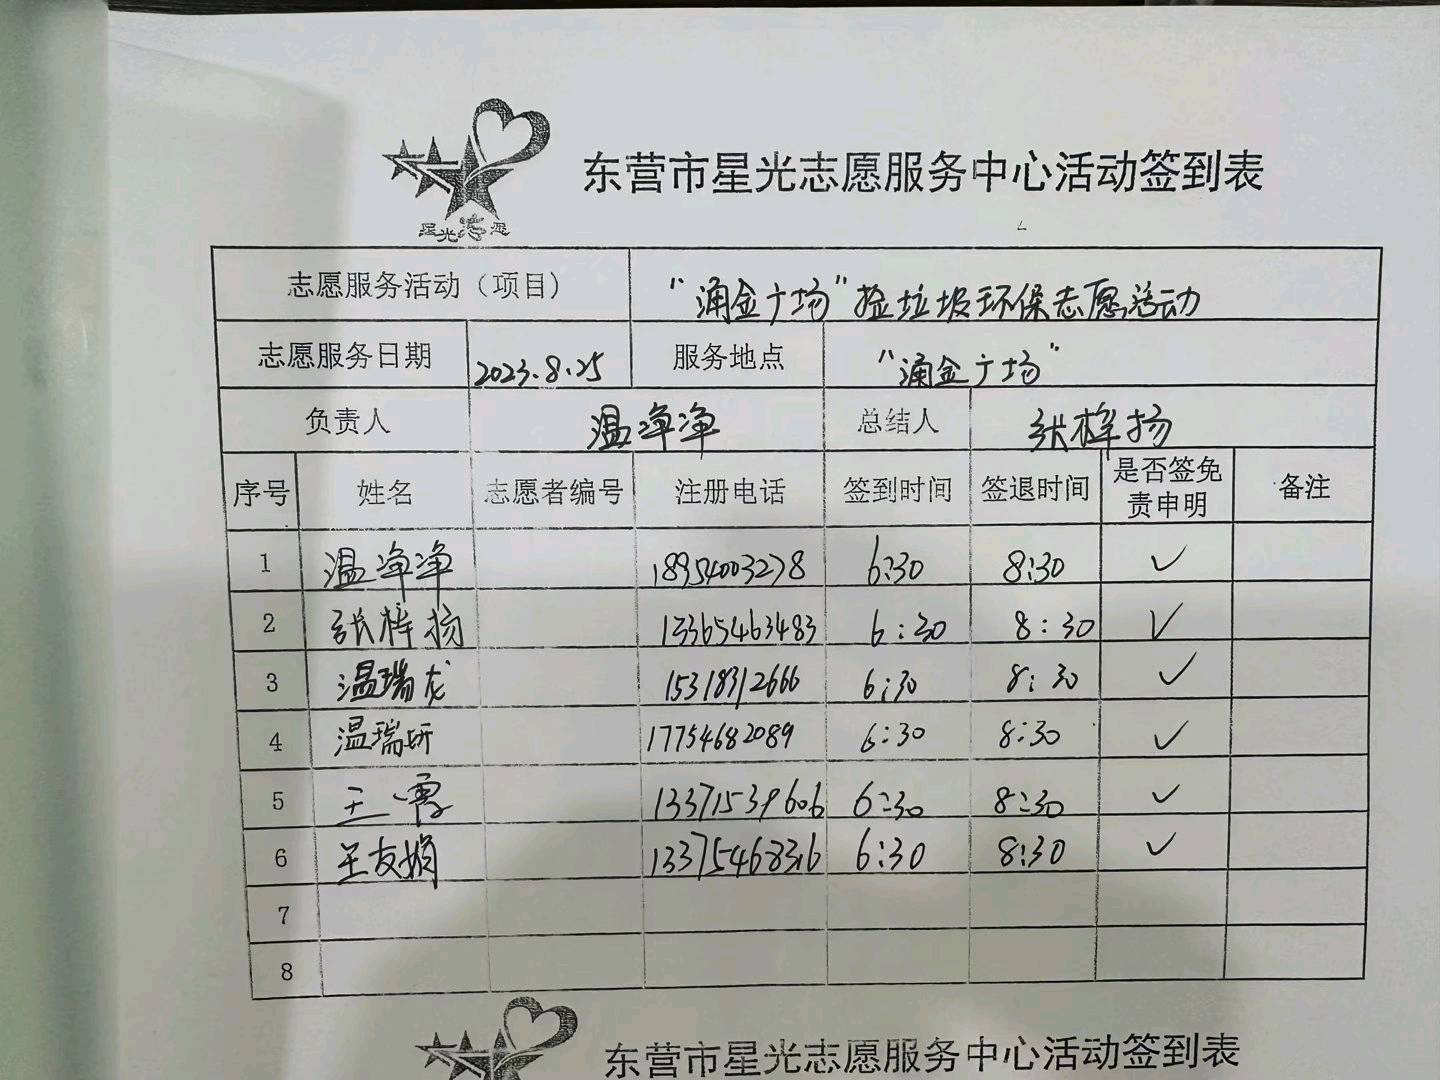 东营市星光志愿服务中心活动签到表
星光志愿
志愿服务活动（项目） “涌金广场”捡垃圾环保志愿活动
志愿服务日期 2023.8.25 服务地点 “涌金广场”
负责人 温净净 总结人 张梓扬
序号 姓名 志愿者编号 注册电话 签到时间 签退时间 是否签免责申明 备注
1 温净净 18954003278 6:30 8:30 ✓
2 张梓扬 13365463483 6:30 8:30 ✓
3 温瑞龙 15318312666 6:30 8:30 ✓
4 温瑞妍 17754682089 6:30 8:30 ✓
5 王一霏 13371539606 6:30 8:30 ✓
6 王友娟 13375468316 6:30 8:30 ✓
7
8
东营市星光志愿服务中心活动签到表